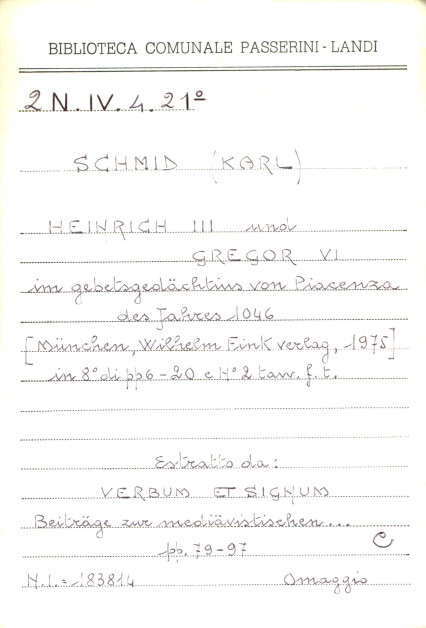 BIBLIOTECA COMUNALE PASSERINI - LANDI
2 N. IV. 4. 21º
SCHMID (KARL)
HEINRICH III und
GREGOR VI
im gebetsgedächtius von Piacenza
des Jahres 1046
[München, Wilhelm Fink verlag, 1975]
in 8° di pp 6 - 20 e 2 tav. f. t.
Estratto da:
VERBUM ET SIGNUM
Beiträge zur mediävistischen...
pp. 79-97
C
N.I. = 183814 Omaggio